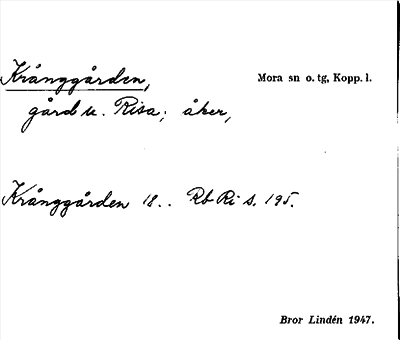 Krånggården,
Mora sn o. tg, Kopp. l.
gård u. Risa; åker,
Krånggården 18.. Rb Ri s. 195.
Bror Lindén 1947.